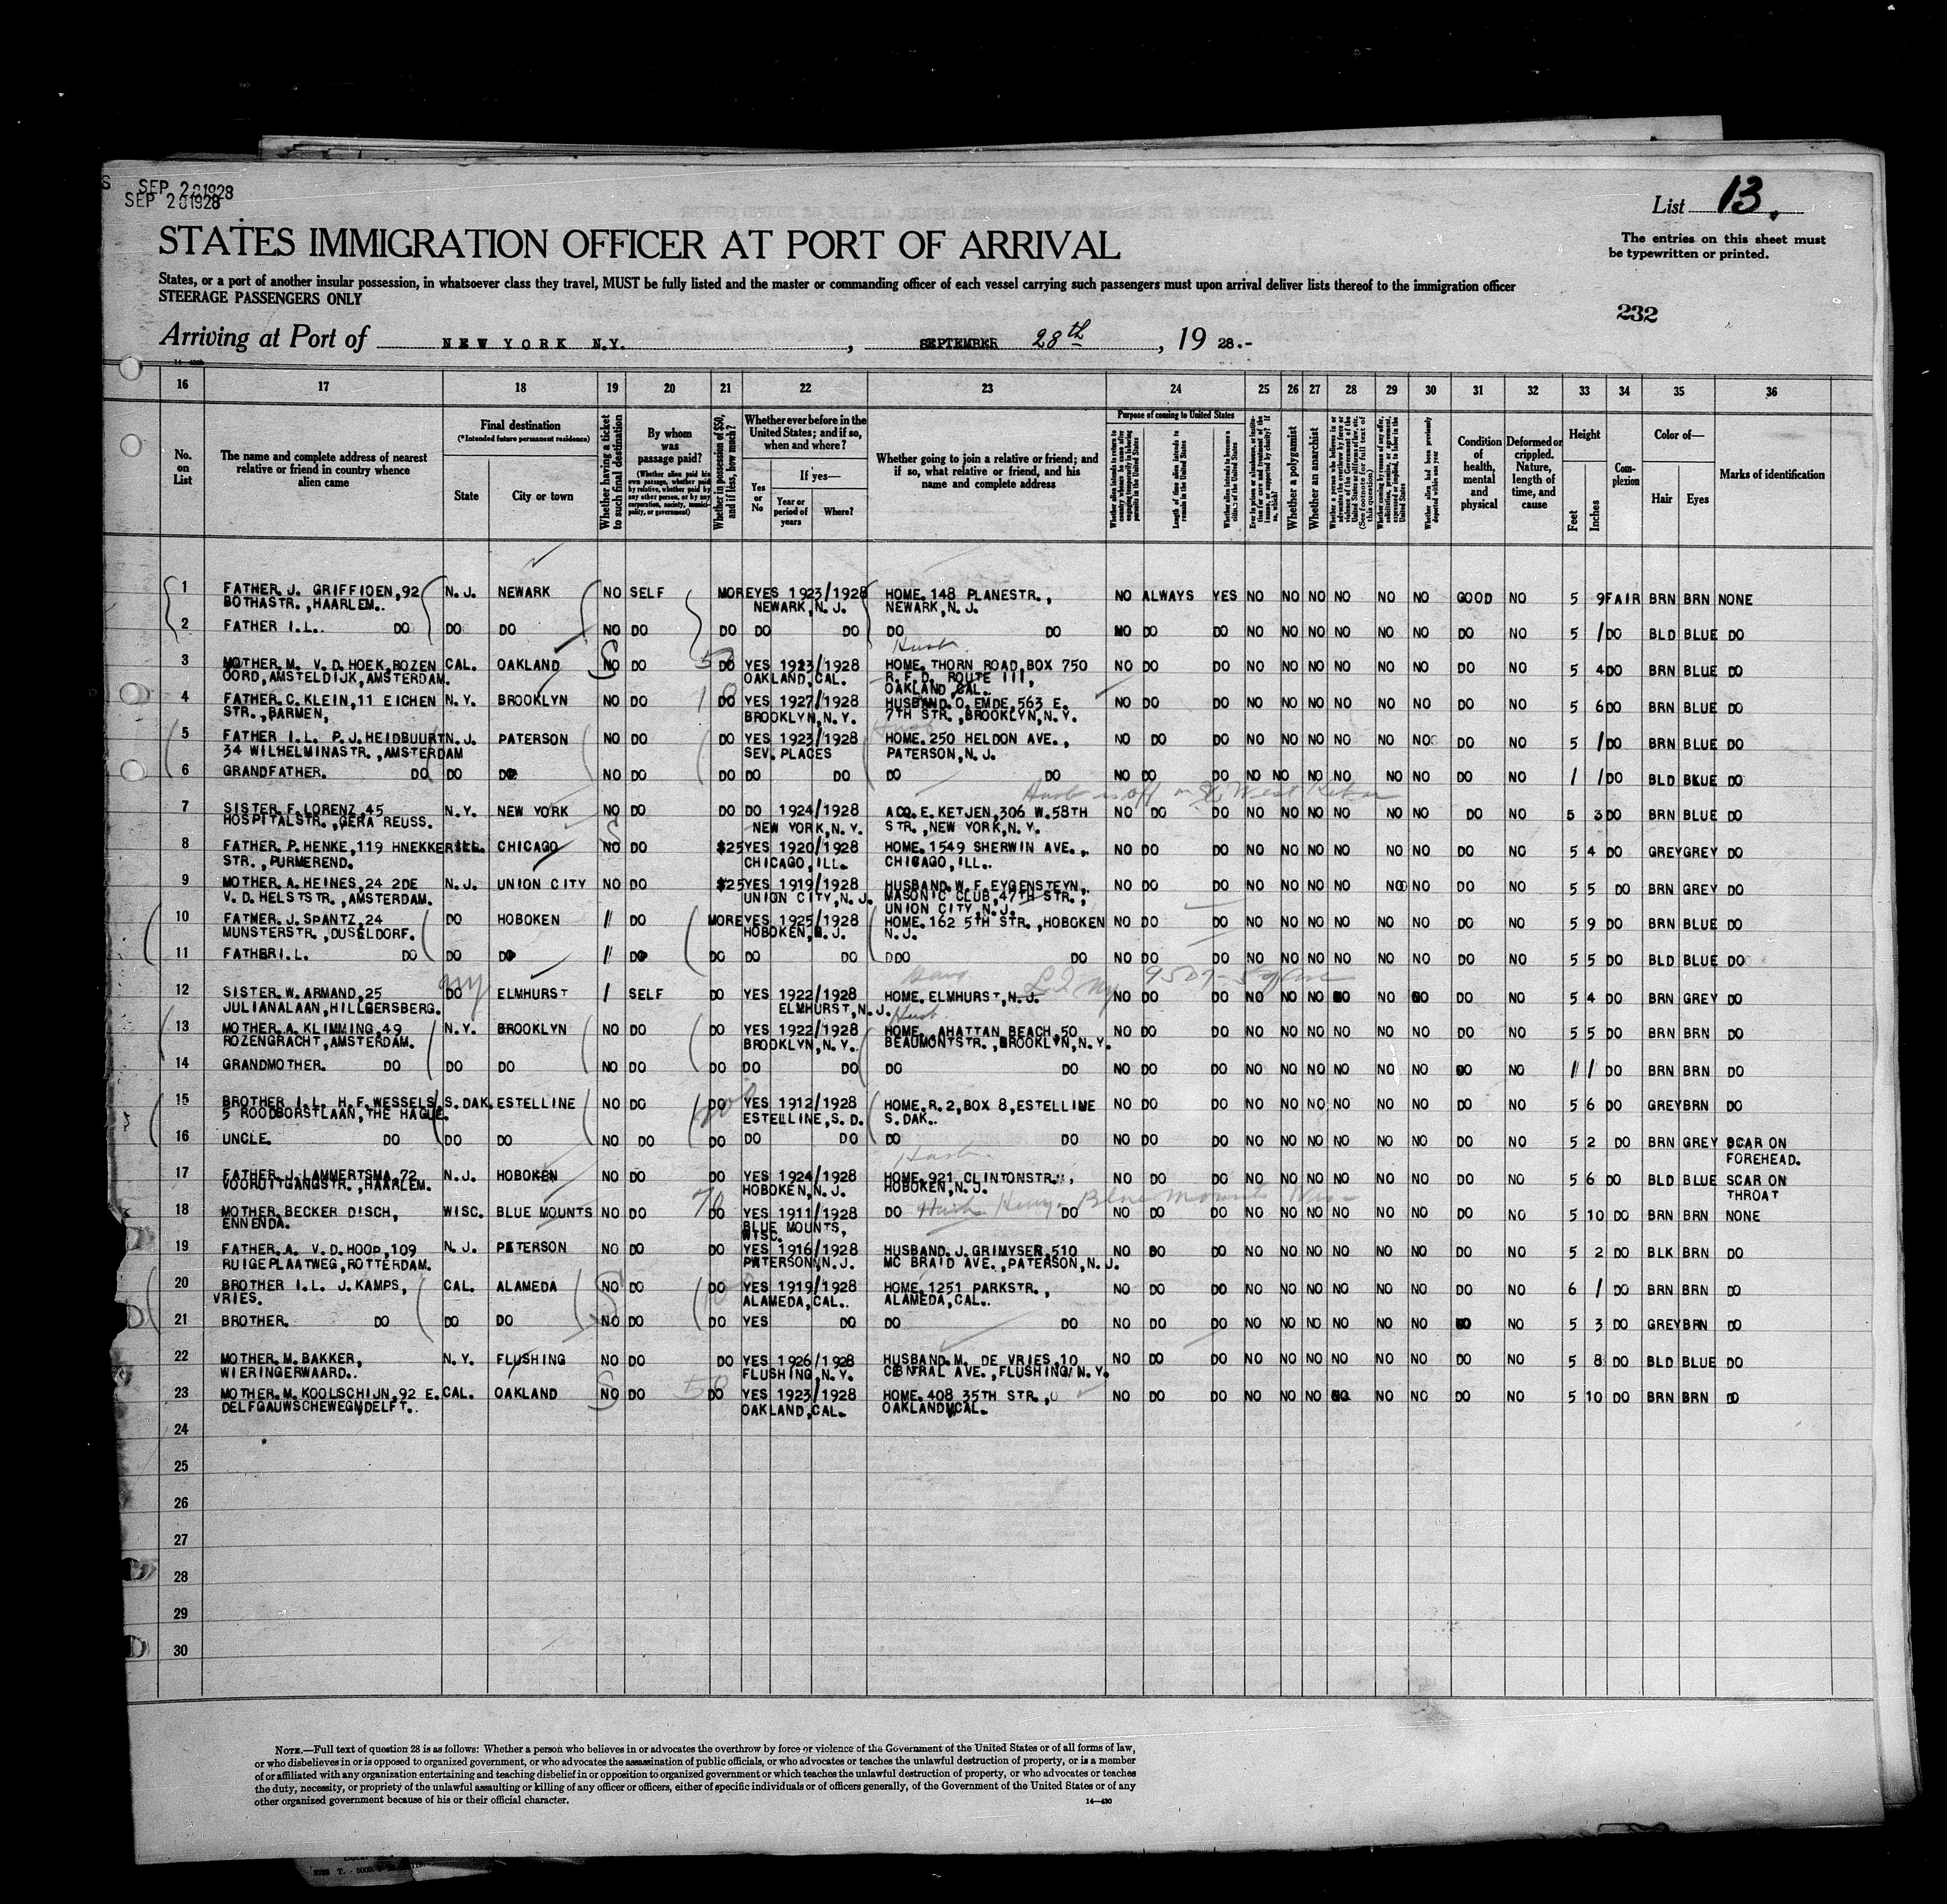 SEP 281928
SEP 281928
List 13.
STATES IMMIGRATION OFFICER AT PORT OF ARRIVAL
The entries on this sheet must
be typewritten or printed.
States, or a port of another insular possession, in whatsoever class they travel, MUST be fully listed and the master or commanding officer of each vessel carrying such passengers must upon arrival deliver lists thereof to the immigration officer
STEERAGE PASSENGERS ONLY
232
Arriving at Port of NEW YORK N.Y. , SEPTEMBER 28th , 19 28.-
16 17 18 19 20 21 22 23 24 25 26 27 28 29 30 31 32 33 34 35 36
No. on List
The name and complete address of nearest relative or friend in country whence alien came
Final destination
(*Intended future permanent residence)
State
City or town
Whether having a ticket to such final destination
By whom was passage paid?
(Whether alien paid his own passage, whether paid by relative, whether paid by any other person, or by any corporation, society, municipality, or government)
Whether in possession of $50, and if less, how much?
Whether ever before in the United States; and if so, when and where?
Yes or No
If yes—
Year or period of years
Where?
Whether going to join a relative or friend; and if so, what relative or friend, and his name and complete address
Purpose of coming to United States
Length of time alien intends to remain in the United States
Whether a polygamist
Whether an anarchist
Condition of health, mental and physical
Deformed or crippled. Nature, length of time, and cause
Height
Feet
Inches
Complexion
Color of—
Hair
Eyes
Marks of identification
1 FATHER J. GRIFFIOEN, 92 N.J. NEWARK NO SELF MORE YES 1923/1928 HOME. 148 PLANESTR., NO ALWAYS YES NO NO NO NO NO NO GOOD NO 5 9 FAIR BRN BRN NONE
BOTHASTR., HAARLEM.. NEWARK, N.J. NEWARK, N.J.
2 FATHER I.L.. DO DO DO NO DO DO DO DO DO DO DO DO NO NO NO NO NO NO DO NO 5 / DO BLD BLUE DO
Husb.
3 MOTHER. M. V.D. HOEK, ROZEN CAL. OAKLAND NO DO DO YES 1923/1928 HOME. THORN ROAD, BOX 750 NO DO DO NO NO NO NO NO NO DO NO 5 4 DO BRN BLUE DO
OORD, AMSTELDIJK, AMSTERDAM. OAKLAND, CAL. R.F.D. ROUTE 111,
OAKLAND, CAL.
4 FATHER. C. KLEIN, 11 EICHEN N.Y. BROOKLYN NO DO DO YES 1927/1928 HUSBAND. O. EMDE, 563 E. NO DO DO NO NO NO NO NO NO DO NO 5 6 DO BRN BLUE DO
STR., BARMEN, BROOKLYN, N.Y. 7TH STR., BROOKLYN, N.Y.
5 FATHER I.L. P.J. HEIDBUURT N.J. PATERSON NO DO DO YES 1923/1928 HOME. 250 HELDON AVE., NO DO DO NO NO NO NO NO NO DO NO 5 / DO BRN BLUE DO
34 WILHELMINASTR., AMSTERDAM SEV. PLACES PATERSON, N.J.
6 GRANDFATHER. DO DO DO NO DO DO DO DO DO DO NO DO DO NO NO NO NO NO NO DO NO / / DO BLD BLUE DO
7 SISTER. F. LORENZ, 45 N.Y. NEW YORK NO DO DO DO 1924/1928 ACQ. E. KETJEN, 306 W. 58TH NO DO DO NO NO NO NO NO NO DO NO 5 3 DO BRN BLUE DO
HOSPITALSTR., GERA REUSS. NEW YORK, N.Y. STR., NEW YORK, N.Y.
8 FATHER. P. HENKE, 119 HNEKKER ILL. CHICAGO NO DO $25 YES 1920/1928 HOME. 1549 SHERWIN AVE., NO DO DO NO NO NO NO NO NO DO NO 5 4 DO GREY GREY DO
STR., PURMEREND. CHICAGO, ILL. CHICAGO, ILL..
9 MOTHER. A. HEINES, 24 2DE N.J. UNION CITY NO DO $25 YES 1919/1928 HUSBAND. W.F. EYGENSTEYN, NO DO DO NO NO NO NO NO NO DO NO 5 5 DO BRN GREY DO
V.D. HELSTSTR., AMSTERDAM. UNION CITY, N.J. MASONIC CLUB, 47TH STR.,
UNION CITY, N.J.
10 FATHER. J. SPANTZ, 24 DO HOBOKEN // DO MORE YES 1925/1928 HOME. 162 5TH STR., HOBOKEN NO DO DO NO NO NO NO NO NO DO NO 5 9 DO BRN BLUE DO
MUNSTERSTR., DUSELDORF. HOBOKEN, N.J. N.J.
11 FATHER I.L. DO DO DO // DO DO DO DO DDO DO NO DO DO NO NO NO NO NO NO DO NO 5 5 DO BLD BLUE DO
ny L.I. Ny
12 SISTER. W. ARMAND, 25 DO ELMHURST / SELF DO YES 1922/1928 HOME. ELMHURST, N.J. NO DO DO NO NO NO NO NO NO DO NO 5 4 DO BRN GREY DO
JULIANALAAN, HILLGERSBERG. ELMHURST, N.J.
Husb.
13 MOTHER. A. KLIMMING, 49 N.Y. BROOKLYN NO DO DO YES 1922/1928 HOME. AHATTAN BEACH, 50 NO DO DO NO NO NO NO NO NO DO NO 5 5 DO BRN BRN DO
ROZENGRACHT, AMSTERDAM. BROOKLYN, N.Y. BEAUMONTSTR., BROOKLYN, N.Y.
14 GRANDMOTHER. DO DO DO NO DO DO DO DO DO DO NO DO DO NO NO NO NO NO NO DO NO / / DO BRN BRN DO
15 BROTHER I.L. H.F. WESSELS, S.DAK. ESTELLINE NO DO DO YES 1912/1928 HOME. R.2, BOX 8, ESTELLINE NO DO DO NO NO NO NO NO NO DO NO 5 6 DO GREY BRN DO
5 ROODBORSTLAAN, THE HAGUE. ESTELLINE, S.D. S.DAK..
16 UNCLE. DO DO DO NO DO DO DO DO DO DO NO DO DO NO NO NO NO NO NO DO NO 5 2 DO BRN GREY SCAR ON
FOREHEAD.
Husb.
17 FATHER. J. LAMMERTSMA, 72 N.J. HOBOKEN NO DO DO YES 1924/1928 HOME. 921 CLINTONSTR., NO DO DO NO NO NO NO NO NO DO NO 5 6 DO BLD BLUE SCAR ON
VOORUITGANGSTR., HAARLEM. HOBOKEN, N.J. HOBOKEN, N.J. THROAT
18 MOTHER. BECKER DISCH, WISC. BLUE MOUNTS NO DO 70 DO YES 1911/1928 DO Husb. Henry. Blue Mounts Wisc DO NO DO DO NO NO NO NO NO NO DO NO 5 10 DO BRN BRN NONE
ENNENDA. BLUE MOUNTS,
WISC.
19 FATHER. A. V.D. HOOP, 109 N.J. PETERSON NO DO DO YES 1916/1928 HUSBAND. J. GRIMYSER, 510 NO DO DO NO NO NO NO NO NO DO NO 5 2 DO BLK BRN DO
RUIGEPLAATWEG, ROTTERDAM. PATERSON, N.J. MC BRAID AVE., PATERSON, N.J.
20 BROTHER I.L. J. KAMPS, CAL. ALAMEDA NO DO DO YES 1919/1928 HOME. 1251 PARKSTR., NO DO DO NO NO NO NO NO NO DO NO 6 / DO BRN BRN DO
VRIES. ALAMEDA, CAL.. ALAMEDA, CAL..
21 BROTHER. DO DO DO NO DO DO YES DO DO DO NO DO DO NO NO NO NO NO NO DO NO 5 3 DO GREY BRN DO
22 MOTHER. M. BAKKER, N.Y. FLUSHING NO DO DO YES 1926/1928 HUSBAND. M. DE VRIES, 10 NO DO DO NO NO NO NO NO NO DO NO 5 8 DO BLD BLUE DO
WIERINGERWAARD.. FLUSHING, N.Y. CENTRAL AVE., FLUSHING N.Y.
23 MOTHER. M. KOOLSCHIJN, 92 E. CAL. OAKLAND NO DO 50 DO YES 1923/1928 HOME. 408 35TH STR., NO DO DO NO NO NO NO NO NO DO NO 5 10 DO BRN BRN DO
DELFGAUWSCHEWEG, DELFT.. OAKLAND, CAL. OAKLAND, CAL.
24
25
26
27
28
29
30
NOTE.—Full text of question 28 is as follows: Whether a person who believes in or advocates the overthrow by force or violence of the Government of the United States or of all forms of law,
or who disbelieves in or is opposed to organized government, or who advocates the assassination of public officials, or who advocates or teaches the unlawful destruction of property, or is a member
of or affiliated with any organization entertaining and teaching disbelief in or opposition to organized government or which teaches the unlawful destruction of property, or who advocates or teaches
the duty, necessity, or propriety of the unlawful assaulting or killing of any officer or officers, either of specific individuals or of officers generally, of the Government of the United States or of any
other organized government because of his or their official character.
14—430